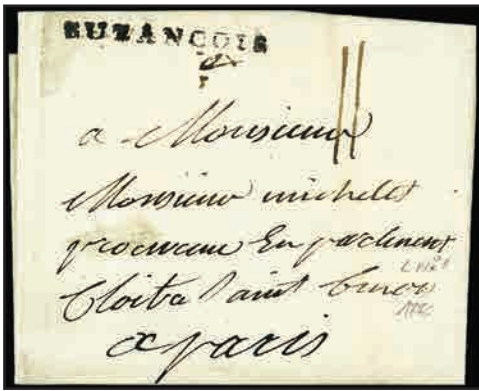 BUZANCOIS
a Monsieur
Monsieur michelet
procureur En parlement
Cloitre Saint
a paris